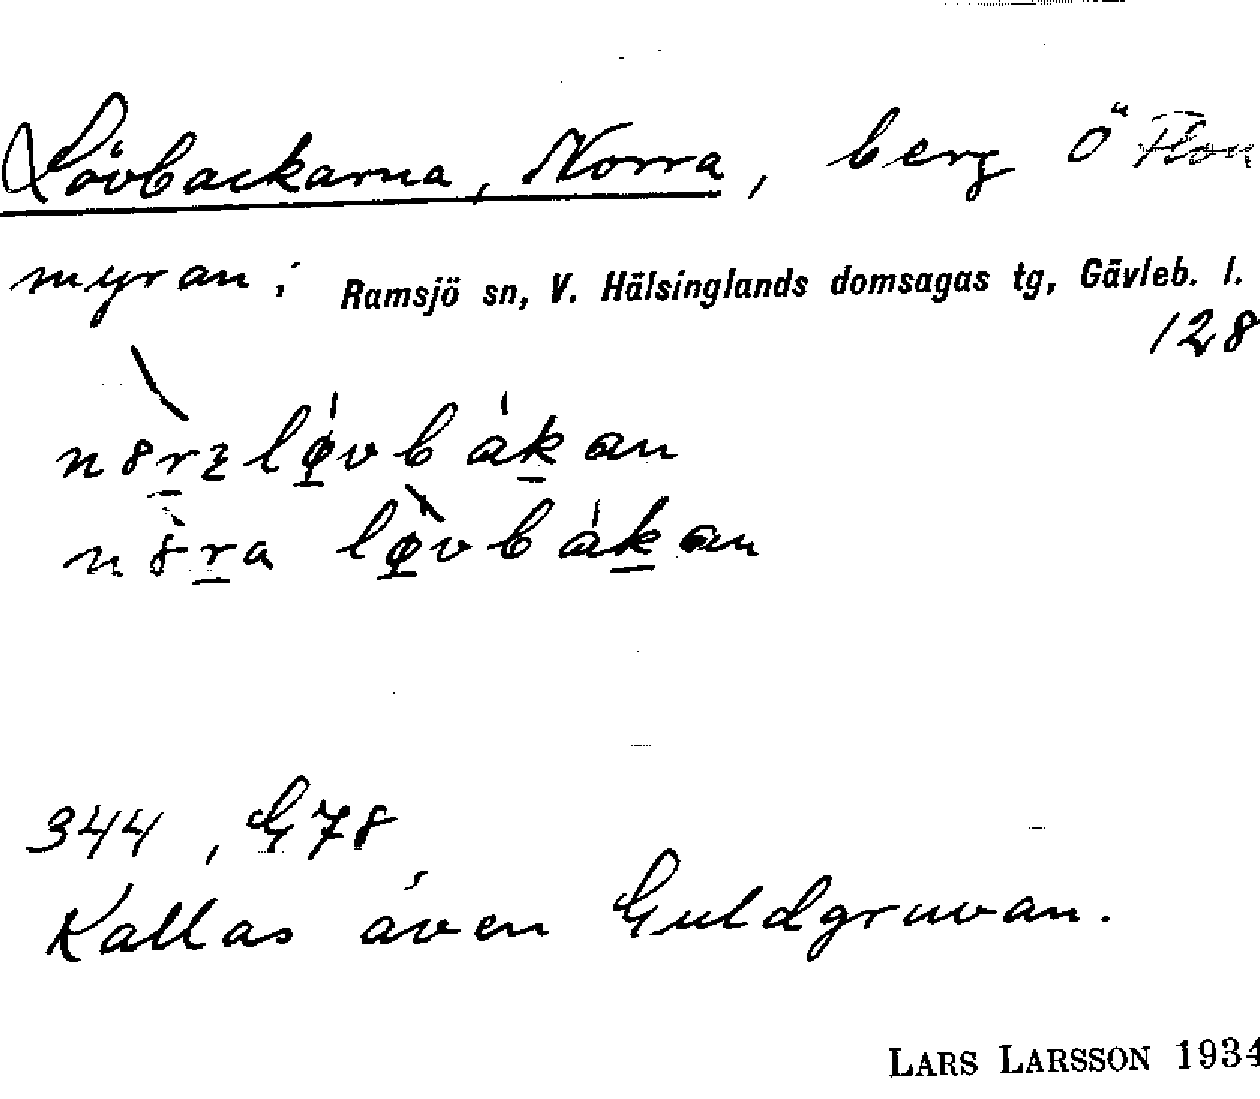 Lövbackarna, Norra, berg Ö Flon
myran i Ramsjö sn, V. Hälsinglands domsagas tg, Gävleb. l.
128
344, G78
Kallas även Guldgruvan.
LARS LARSSON 1934